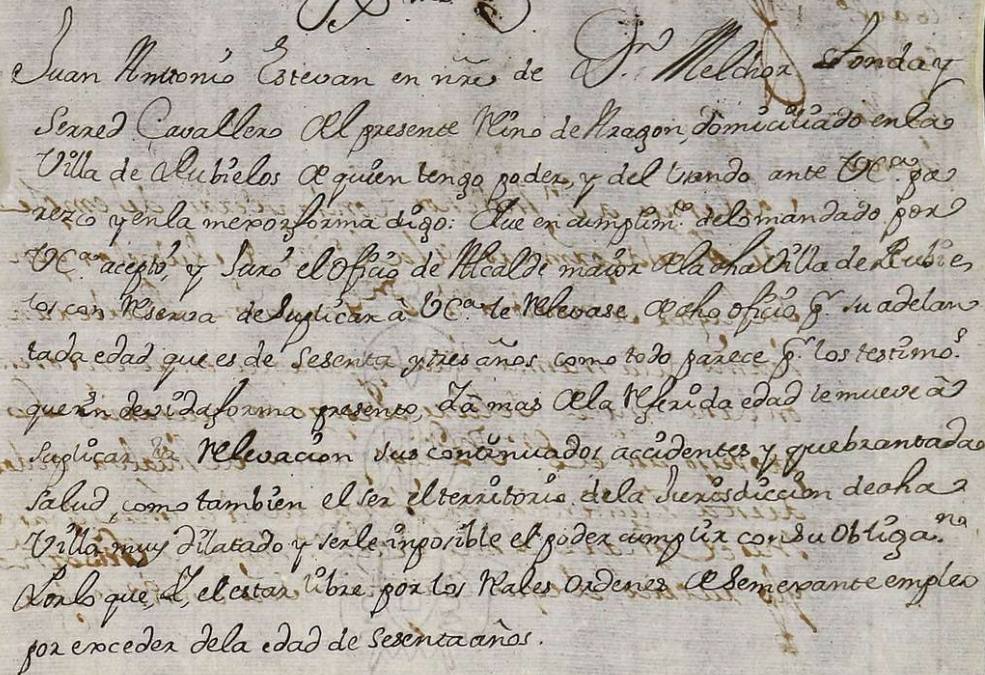 Juan Antonio Estevan en nre de Dn. Melchor Fonda y
Serred Cavallero del presente Rino de Aragon, domiciliado en la
Villa de Rubielos de quien tengo poder, y del Usando ante V.Ex.a pa
rezco y en la mexor forma digo: Que en cumplim.to delo mandado por
V.Ex.a acepto, y Juró el oficio de Alcalde maior dela dha Villa de Rubie
los con Reserva de Suplicar à V.Ex.a le Relevase de dho oficio pr. su adelan
tada edad que es de Sesenta y tres años como todo parece pr. los testimos.
que en devida forma presento, Y à mas de la Referida edad le mueve à
Suplicar la Relevacion sus continuados accidentes y quebrantada
salud, como tambien el ser el territorio dela Jurisdiccion de dha
Villa muy dilatado y serle inposible el poder cumplir con su obliga.on
Por lo que, Y, el estar libre por los Rales ordenes de Semexante empleo
por exceder dela edad de sesenta años.